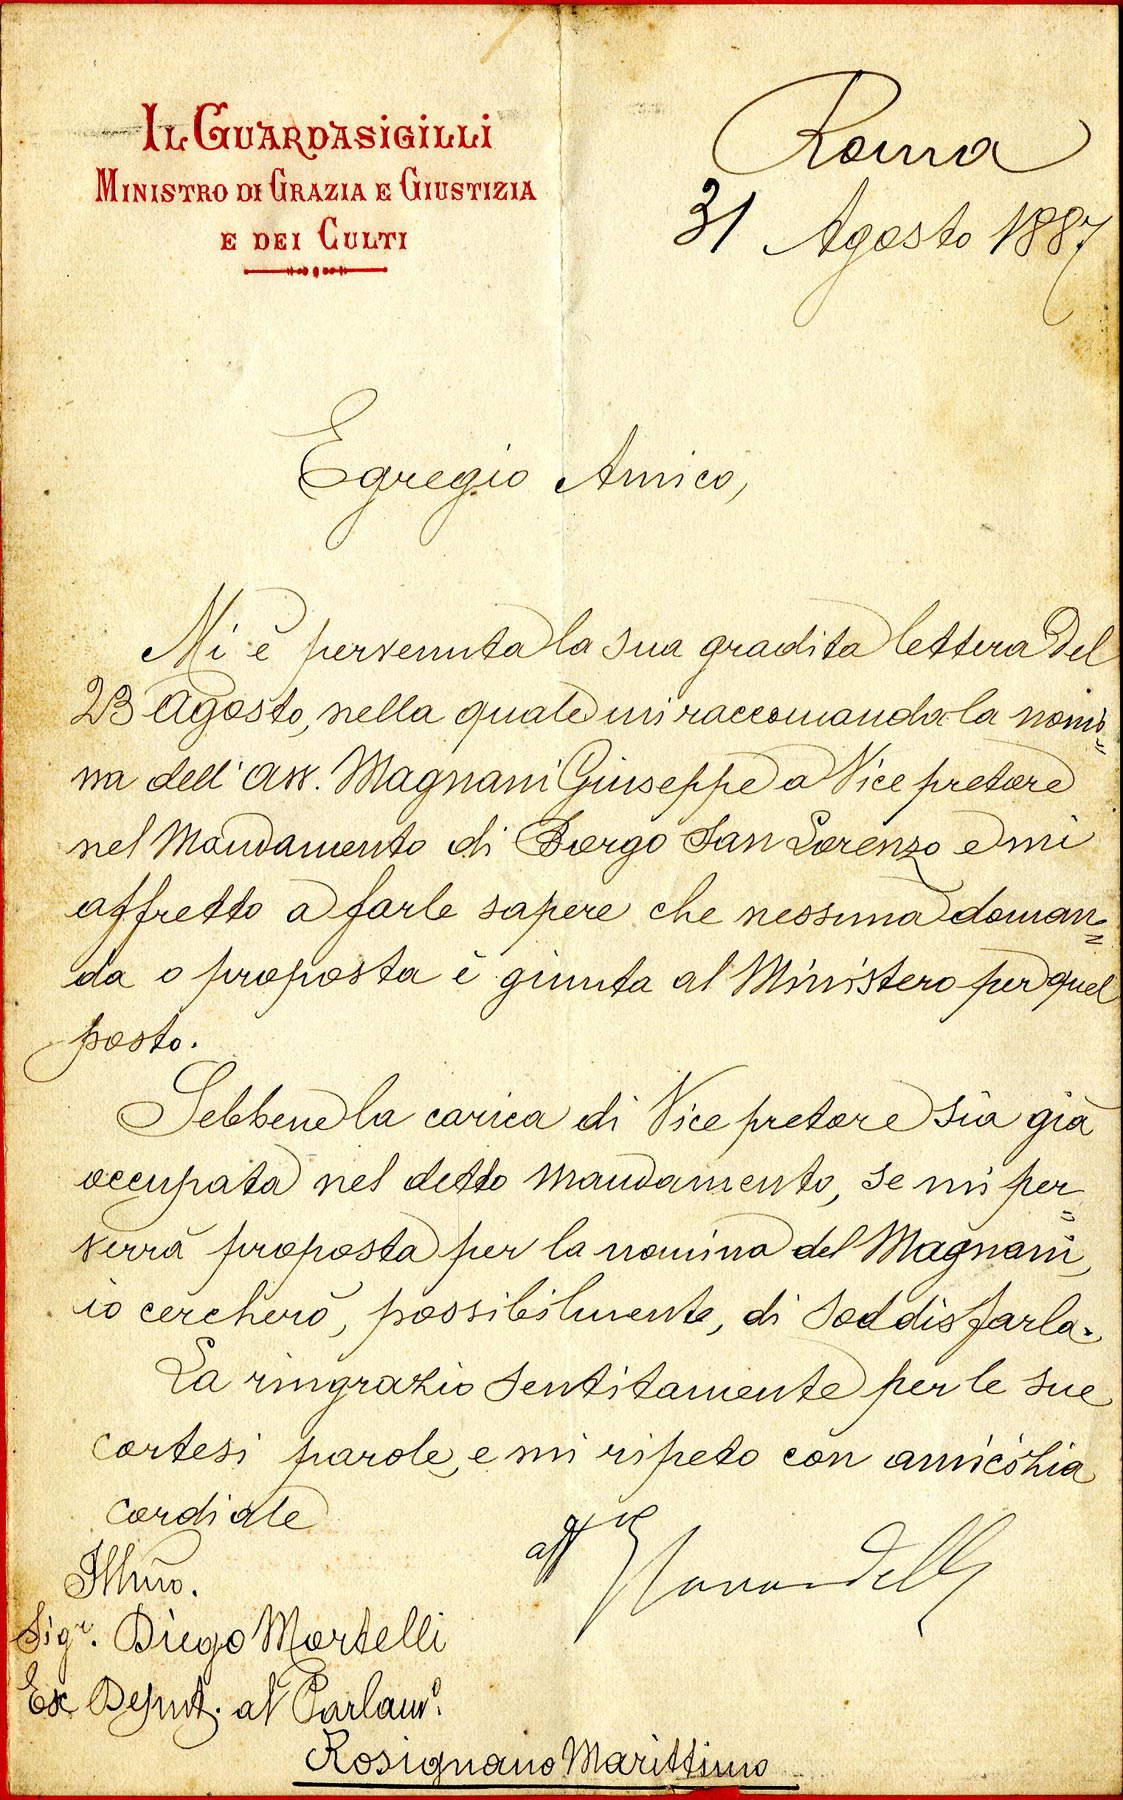 IL GUARDASIGILLI
MINISTRO DI GRAZIA E GIUSTIZIA
E DEI CULTI
Roma
31 Agosto 1887
Egregio Amico,
Mi è pervenuta la sua gradita lettera del
23 Agosto, nella quale mi raccomanda la nomi=
na dell'Avv. Magnani Giuseppe a Vice pretore
nel Mandamento di Borgo San Lorenzo e mi
affretto a farle sapere che nessuna doman=
da o proposta è giunta al Ministero per quel
posto.
Sebbene la carica di Vice pretore sia già
occupata nel detto mandamento, se mi per=
verrà proposta per la nomina del Magnani,
io cercherò, possibilmente, di soddisfarla.
La ringrazio sentitamente per le sue
cortesi parole, e mi ripeto con amicizia
cordiale
aff mo
Zanardelli
Illmo.
Sigr. Diego Martelli
Ex Deput. al Parlamo.
Rosignano Marittimo